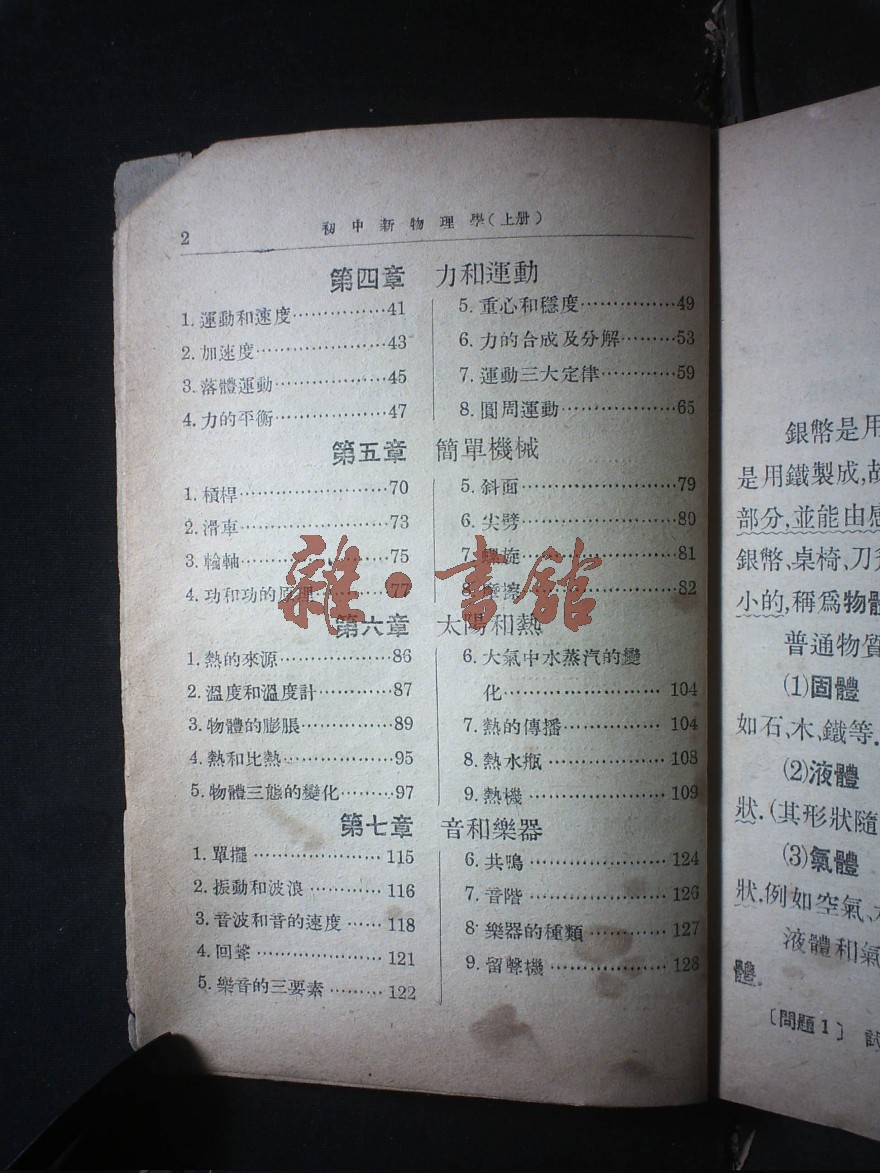 2
初中新物理學(上册)
第四章 力和運動
1. 運動和速度……………41
2. 加速度……………43
3. 落體運動……………45
4. 力的平衡……………47
5. 重心和穩度……………49
6. 力的合成及分解………53
7. 運動三大定律…………59
8. 圓周運動……………65
第五章 簡單機械
1. 槓桿……………70
2. 滑車……………73
3. 輪軸……………75
4. 功和功的原理………77
5. 斜面……………79
6. 尖劈……………80
7. 螺旋……………81
8. 摩擦……………82
第六章 太陽和熱
1. 熱的來源……………86
2. 溫度和溫度計…………87
3. 物體的膨脹……………89
4. 熱和比熱……………95
5. 物體三態的變化………97
6. 大氣中水蒸汽的變
化……………104
7. 熱的傳播……………104
8. 熱水瓶……………108
9. 熱機……………109
第七章 音和樂器
1. 單擺……………115
2. 振動和波浪…………116
3. 音波和音的速度……118
4. 回聲……………121
5. 樂音的三要素………122
6. 共鳴……………124
7. 音階……………126
8. 樂器的種類…………127
9. 留聲機……………128
雜·書館
銀幣是用
是用鐵製成,故
部分,並能由感
銀幣、桌椅、刀
小的,稱爲物體
普通物質
(1)固體
如石、木、鐵等.
(2)液體
狀.(其形狀隨
(3)氣體
狀.例如空氣、
液體和氣
體.
〔問題1〕 試